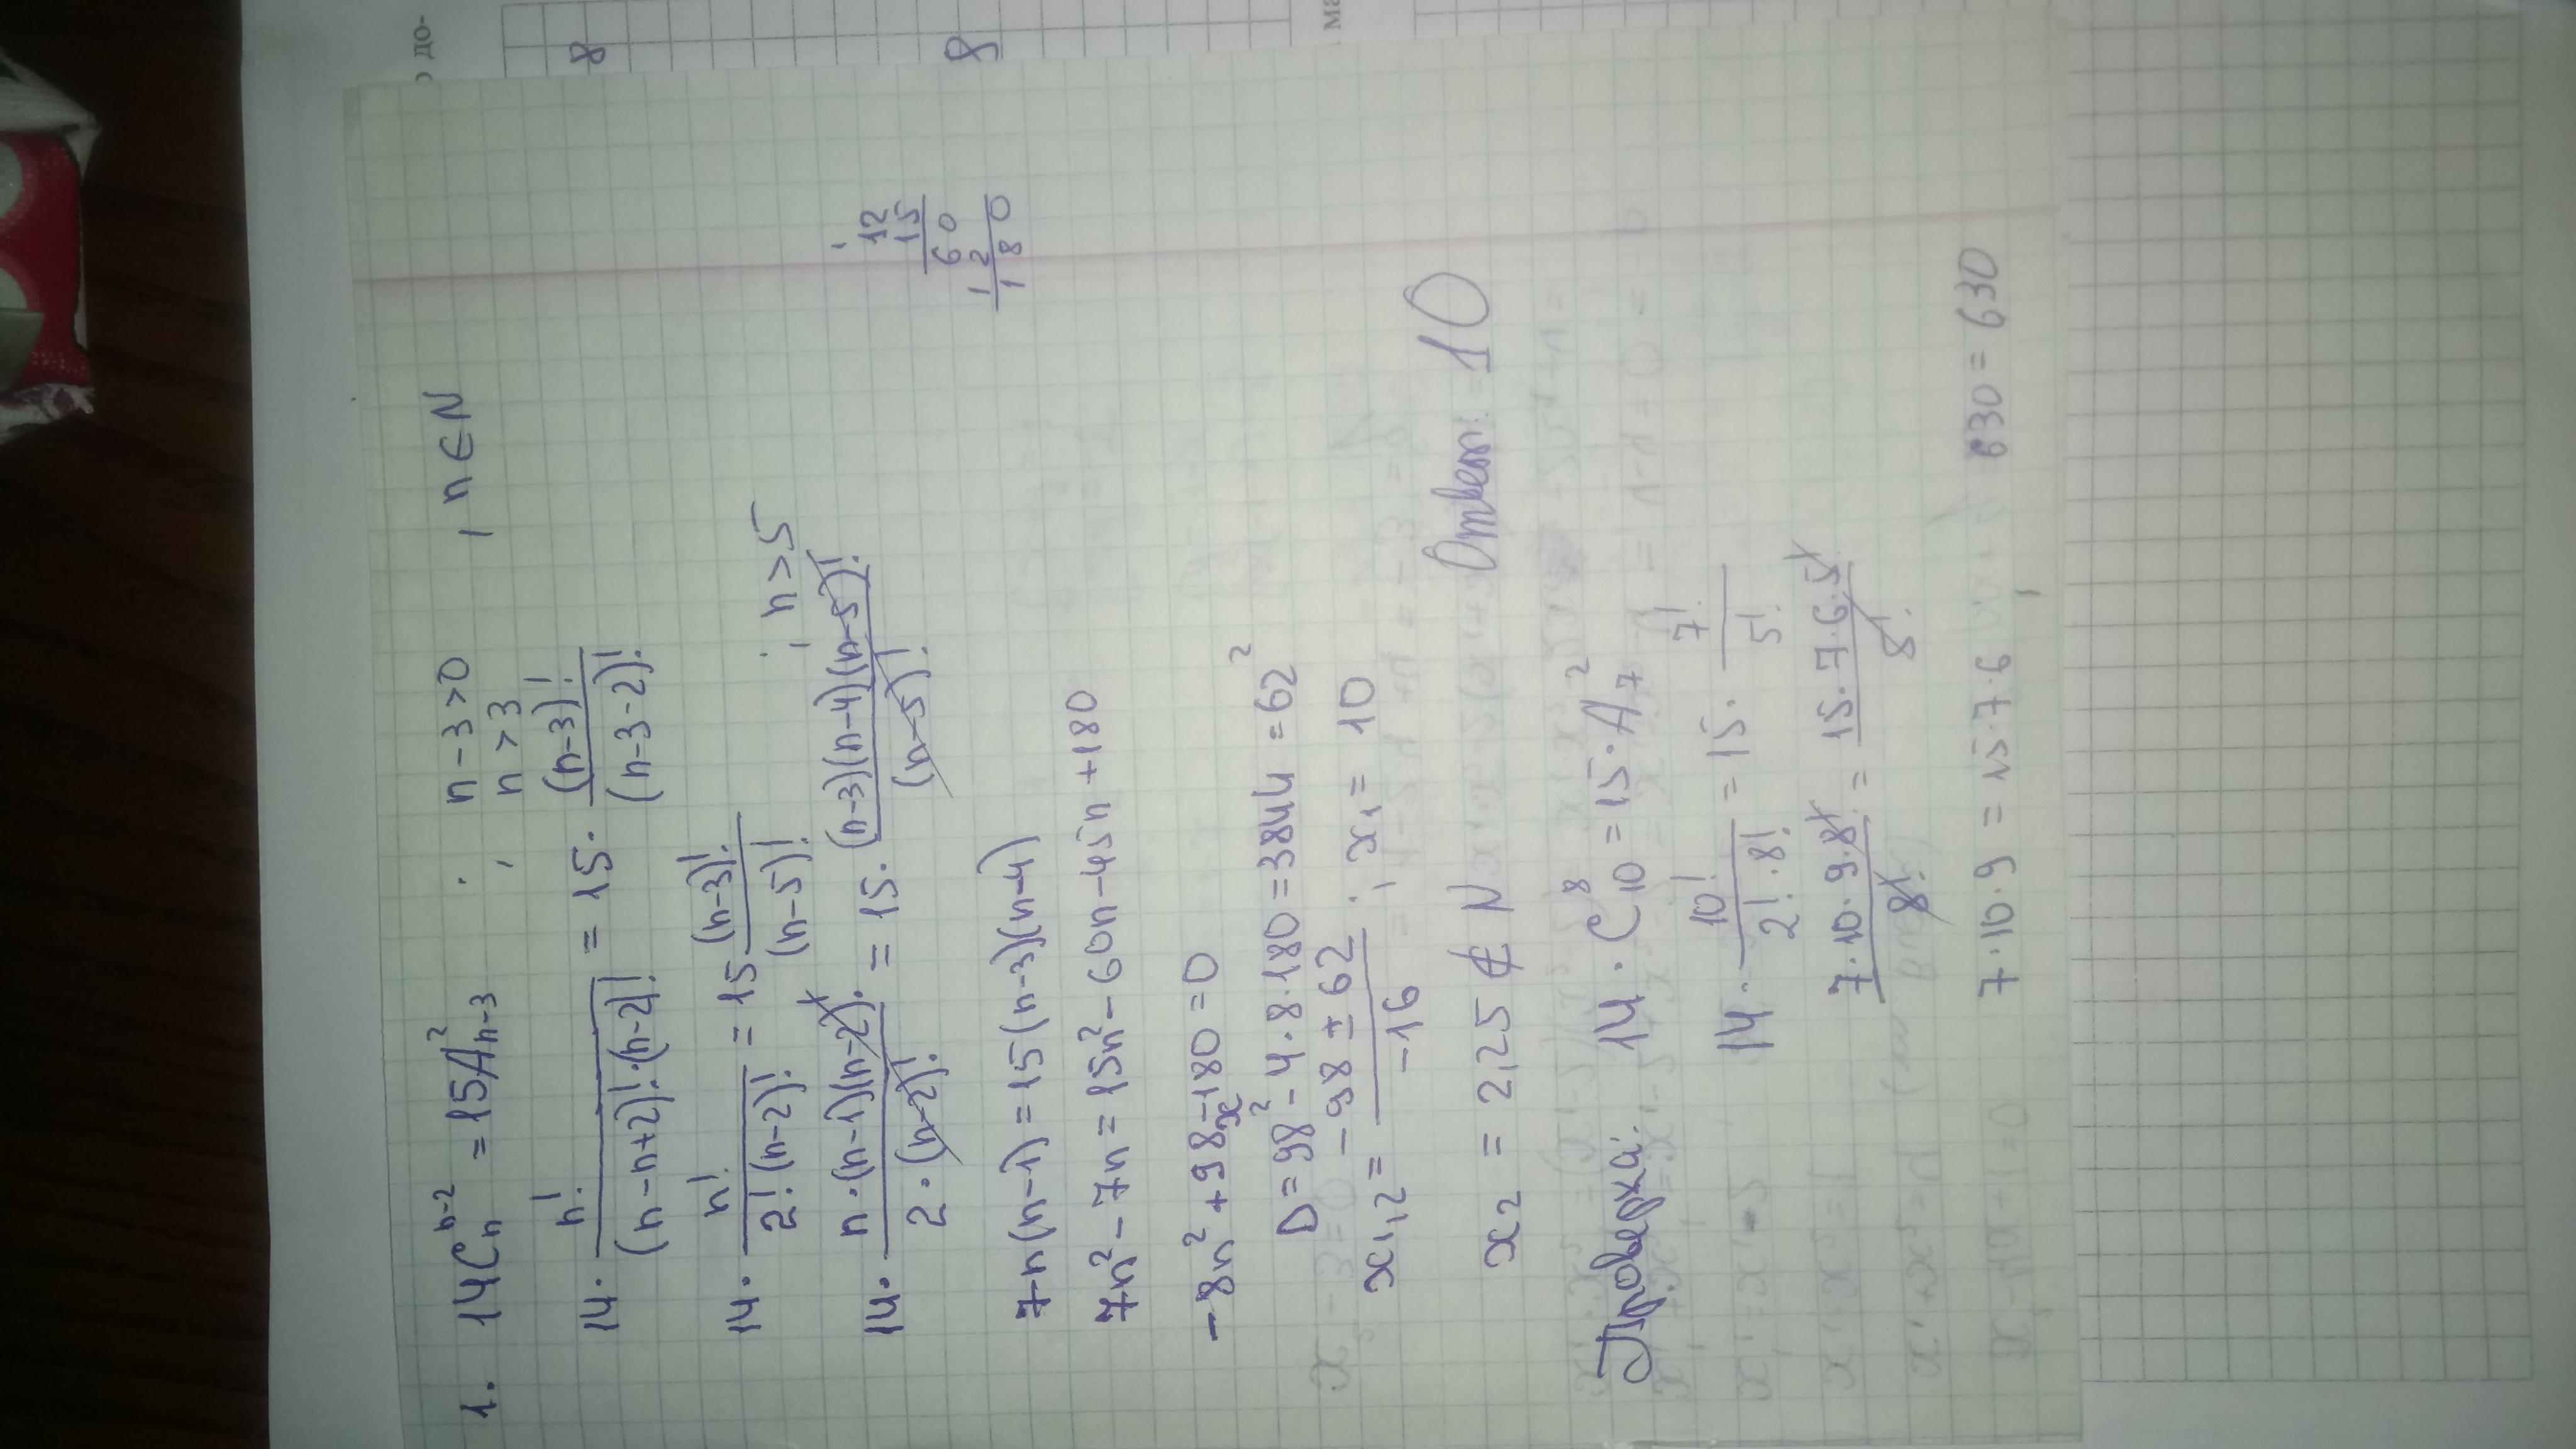 до-
8
8
ма
1. 14C_n^{n-2} = 15A_{n-3}^2 ; n-3>0 , n∈N
n>3
14 · n! / (n-n+2)!·(n-2)! = 15 · (n-3)! / (n-3-2)!
14 · n! / 2!·(n-2)! = 15 (n-3)! / (n-5)! ; n>5
14 · n·(n-1)(n-2)! / 2·(n-2)! = 15 · (n-3)(n-4)(n-5)! / (n-5)!
12
15
60
12
180
7n(n-1) = 15(n-3)(n-4)
7n² - 7n = 15n² - 60n - 45n + 180
-8n² + 98x - 180 = 0
D = 98² - 4·8·180 = 3844 = 62²
x₁,₂ = -98 ± 62 / -16 ; x₁ = 10
x₂ = 2,25 ∉ N Ответ: 10
Проверка: 14 · C_{10}^8 = 15 · A_7^2
14 · 10! / 2!·8! = 15 · 7! / 5!
7·10·9·8! / 8! = 15·7·6·5! / 8!
7·10·9 = 15·7·6 , 630 = 630